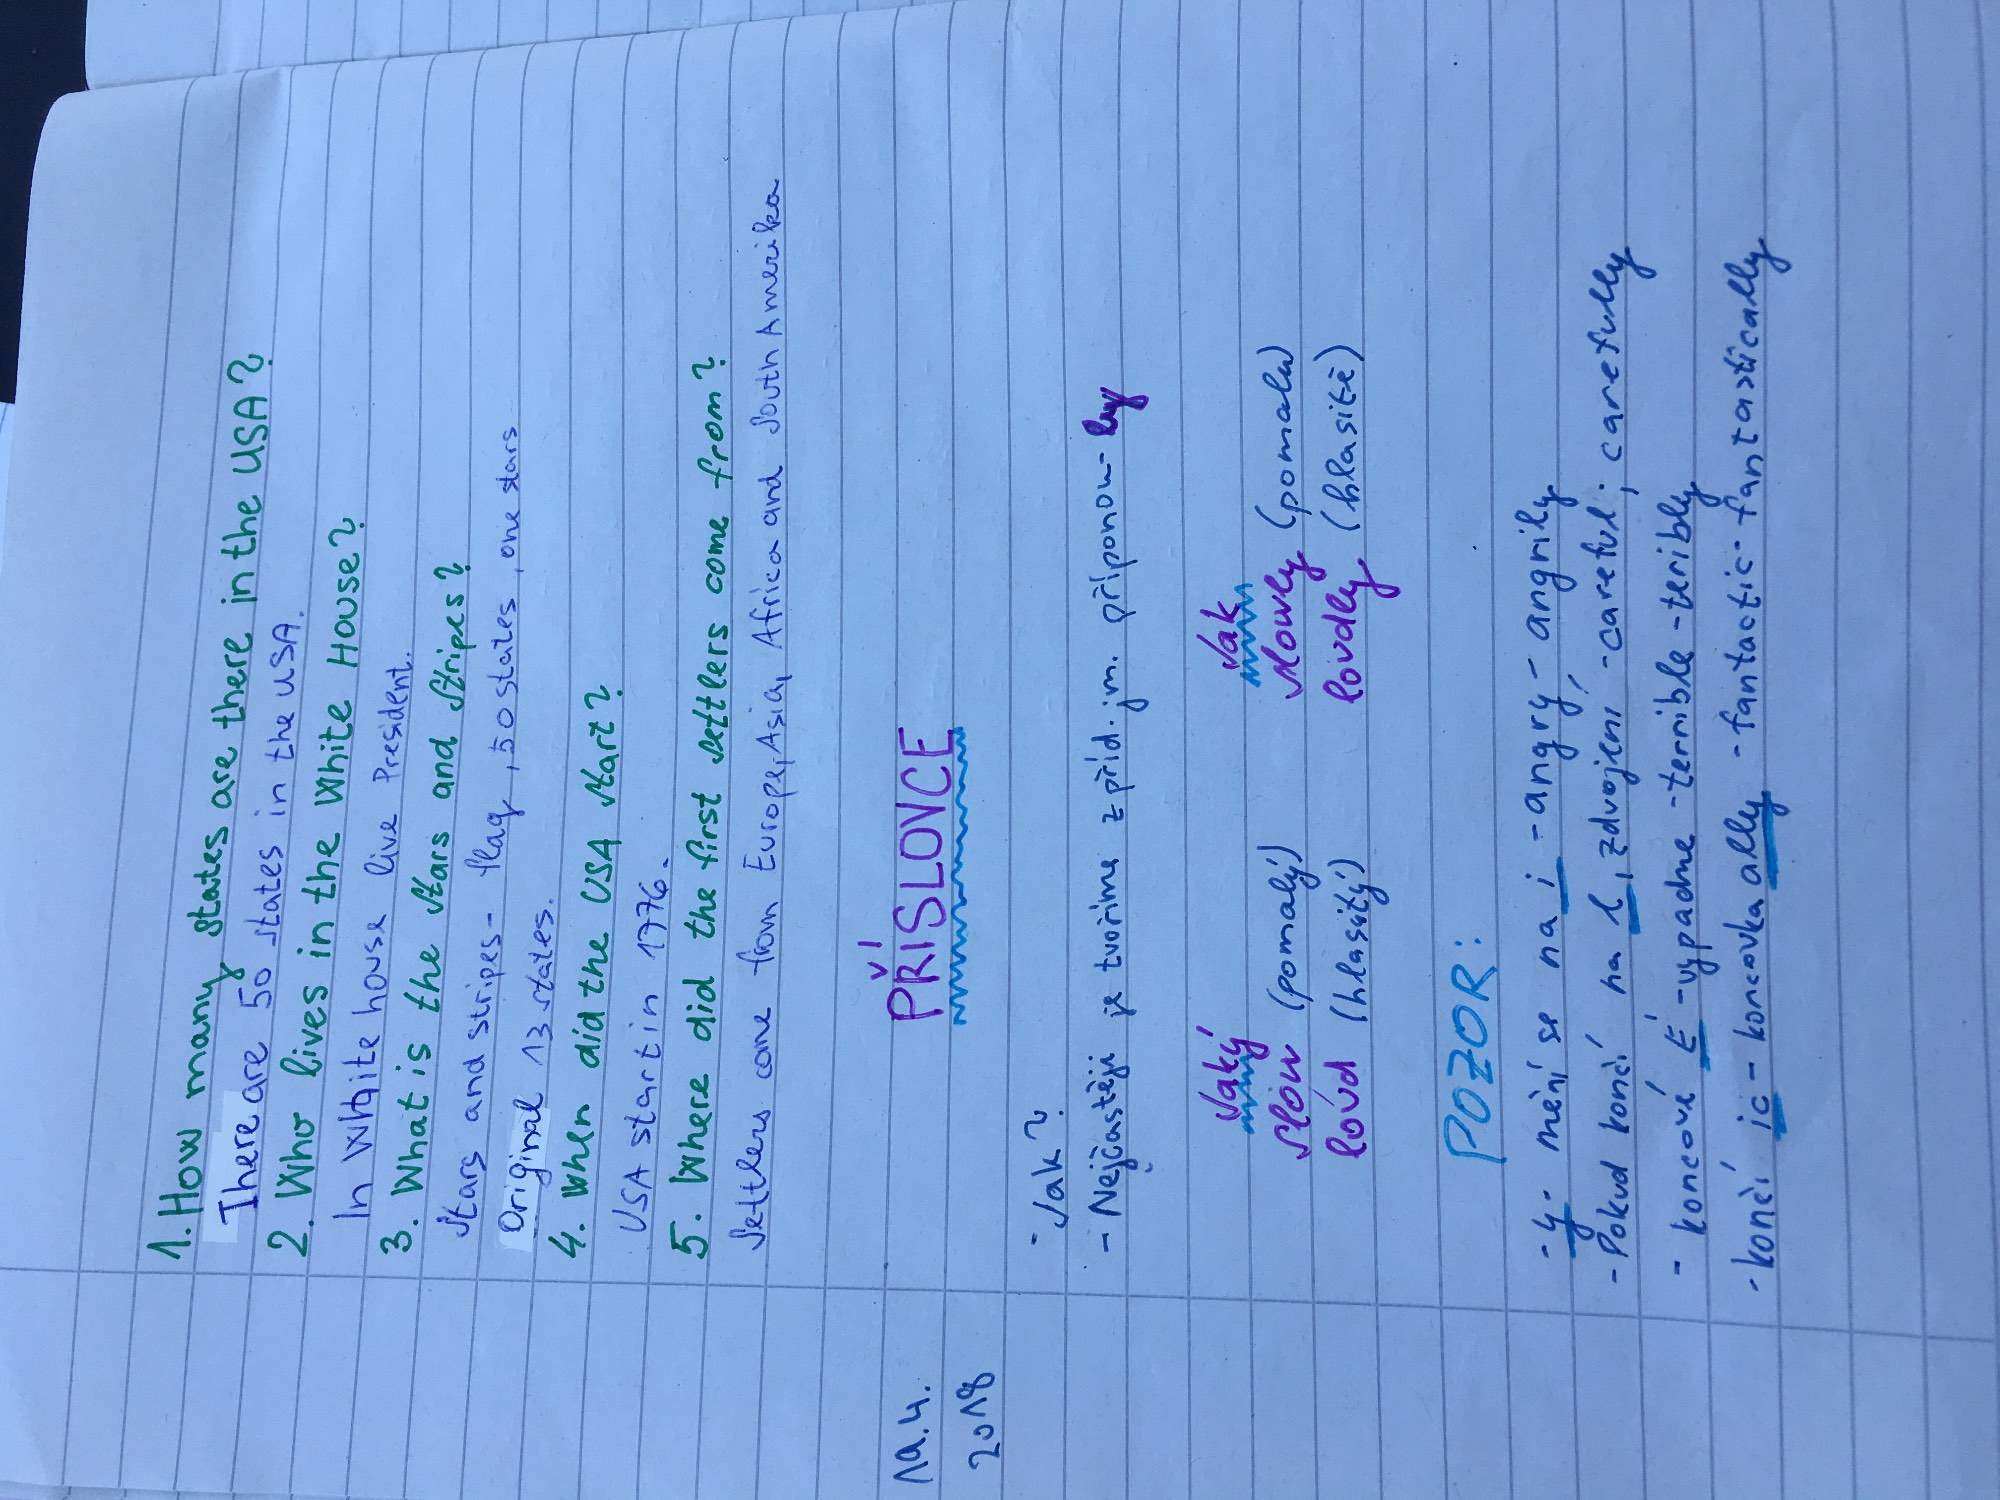 1. How many states are there in the USA?
There are 50 states in the USA.
2. Who lives in the White House?
In White house live President.
3. What is the Stars and Stripes?
Stars and stripes - flag, 50 states, one stars
Original 13 states.
4. When did the USA start?
USA start in 1776.
5. Where did the first settlers come from?
Settlers come from Europe, Asia, Africa and South Amerika
PŘÍSLOVCE
2018
- Jak?
- Nejčastěji je tvoříme z příd. jm. příponou -ly
Jaký Jak
slow (pomalý) slowly (pomalu)
loud (hlasitý) loudly (hlasitě)
POZOR:
- y - mění se na i - angry - angrily
- Pokud končí na l, zdvojení - careful; carefully
- koncové E - vypadne - terrible - teribly
- končí ic - koncovka ally - fantactic - fantastically